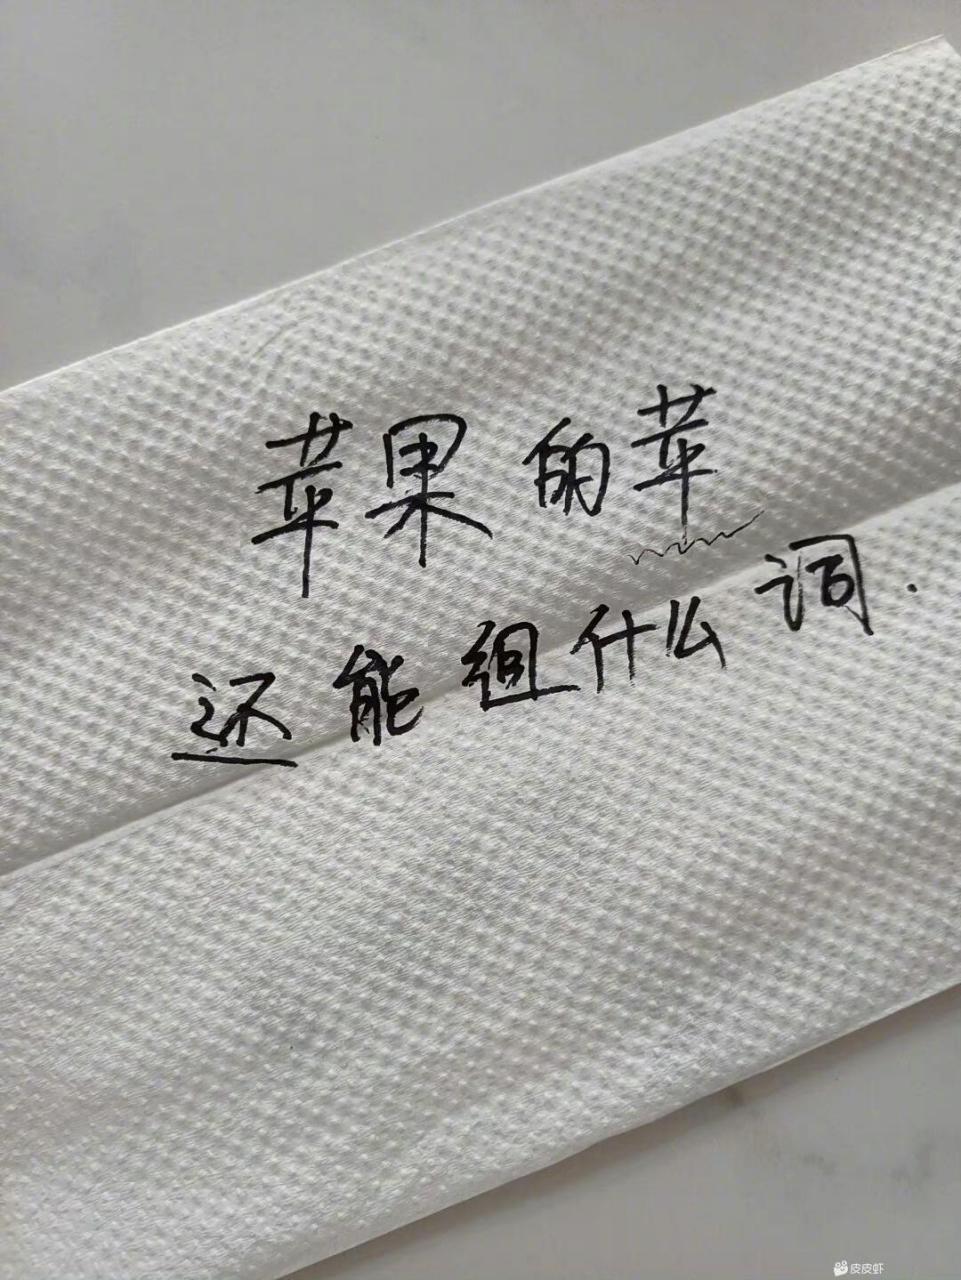 苹果的苹
还能组什么词.
皮皮虾